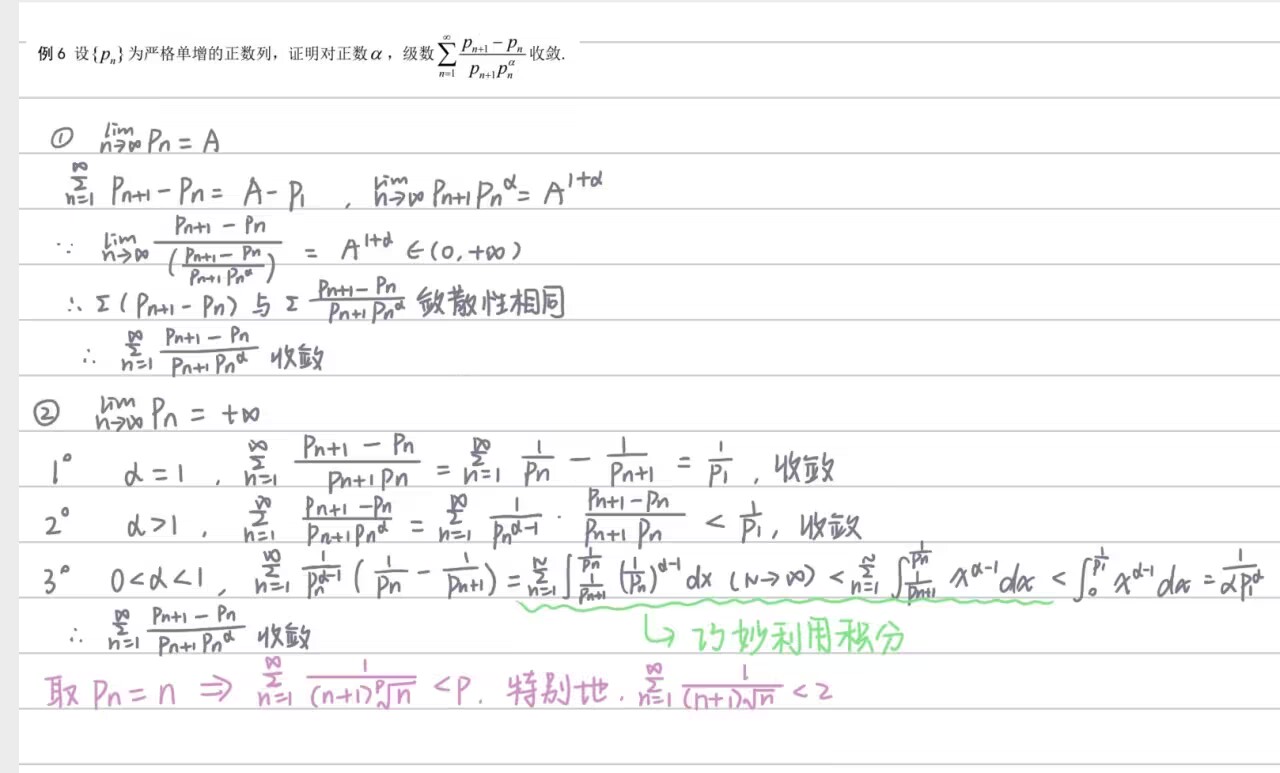 例 6 设{pₙ}为严格单增的正数列，证明对正数α，级数 ∑_{n=1}^{∞} (p_{n+1} − p_n)/(p_{n+1}p_n^α) 收敛.
① lim_{n→∞} Pn = A
∑_{n=1}^{∞} P_{n+1} − Pn = A − P₁ , lim_{n→∞} P_{n+1}Pn^α = A^{1+α}
∵ lim_{n→∞} (P_{n+1} − Pn)/((P_{n+1} − Pn)/(P_{n+1}Pn^α)) = A^{1+α} ∈ (0, +∞)
∴ Σ(P_{n+1} − Pn) 与 Σ (P_{n+1} − Pn)/(P_{n+1}Pn^α) 敛散性相同
∴ ∑_{n=1}^{∞} (P_{n+1} − Pn)/(P_{n+1}Pn^α) 收敛
② lim_{n→∞} Pn = +∞
1° α = 1 , ∑_{n=1}^{∞} (P_{n+1} − Pn)/(P_{n+1}Pn) = ∑_{n=1}^{∞} 1/Pn − 1/P_{n+1} = 1/P₁ , 收敛
2° α > 1 , ∑_{n=1}^{∞} (P_{n+1} − Pn)/(P_{n+1}Pn^α) = ∑_{n=1}^{∞} 1/Pn^{α−1} · (P_{n+1} − Pn)/(P_{n+1}Pn) < 1/P₁ , 收敛
3° 0 < α < 1 , ∑_{n=1}^{∞} 1/Pn^{α−1} (1/Pn − 1/P_{n+1}) = ∑_{n=1}^{N} ∫_{1/P_{n+1}}^{1/Pn} (1/Pn)^{α−1} dx (N→∞) < ∑_{n=1}^{N} ∫_{1/P_{n+1}}^{1/Pn} x^{α−1} dx < ∫_0^{1/P₁} x^{α−1} dx = 1/(αP₁^α)
∴ ∑_{n=1}^{∞} (P_{n+1} − Pn)/(P_{n+1}Pn^α) 收敛
↳ 巧妙利用积分
取 Pn = n ⇒ ∑_{n=1}^{∞} 1/((n+1)ᵖ√n) < P. 特别地. ∑_{n=1}^{∞} 1/((n+1)√n) < 2